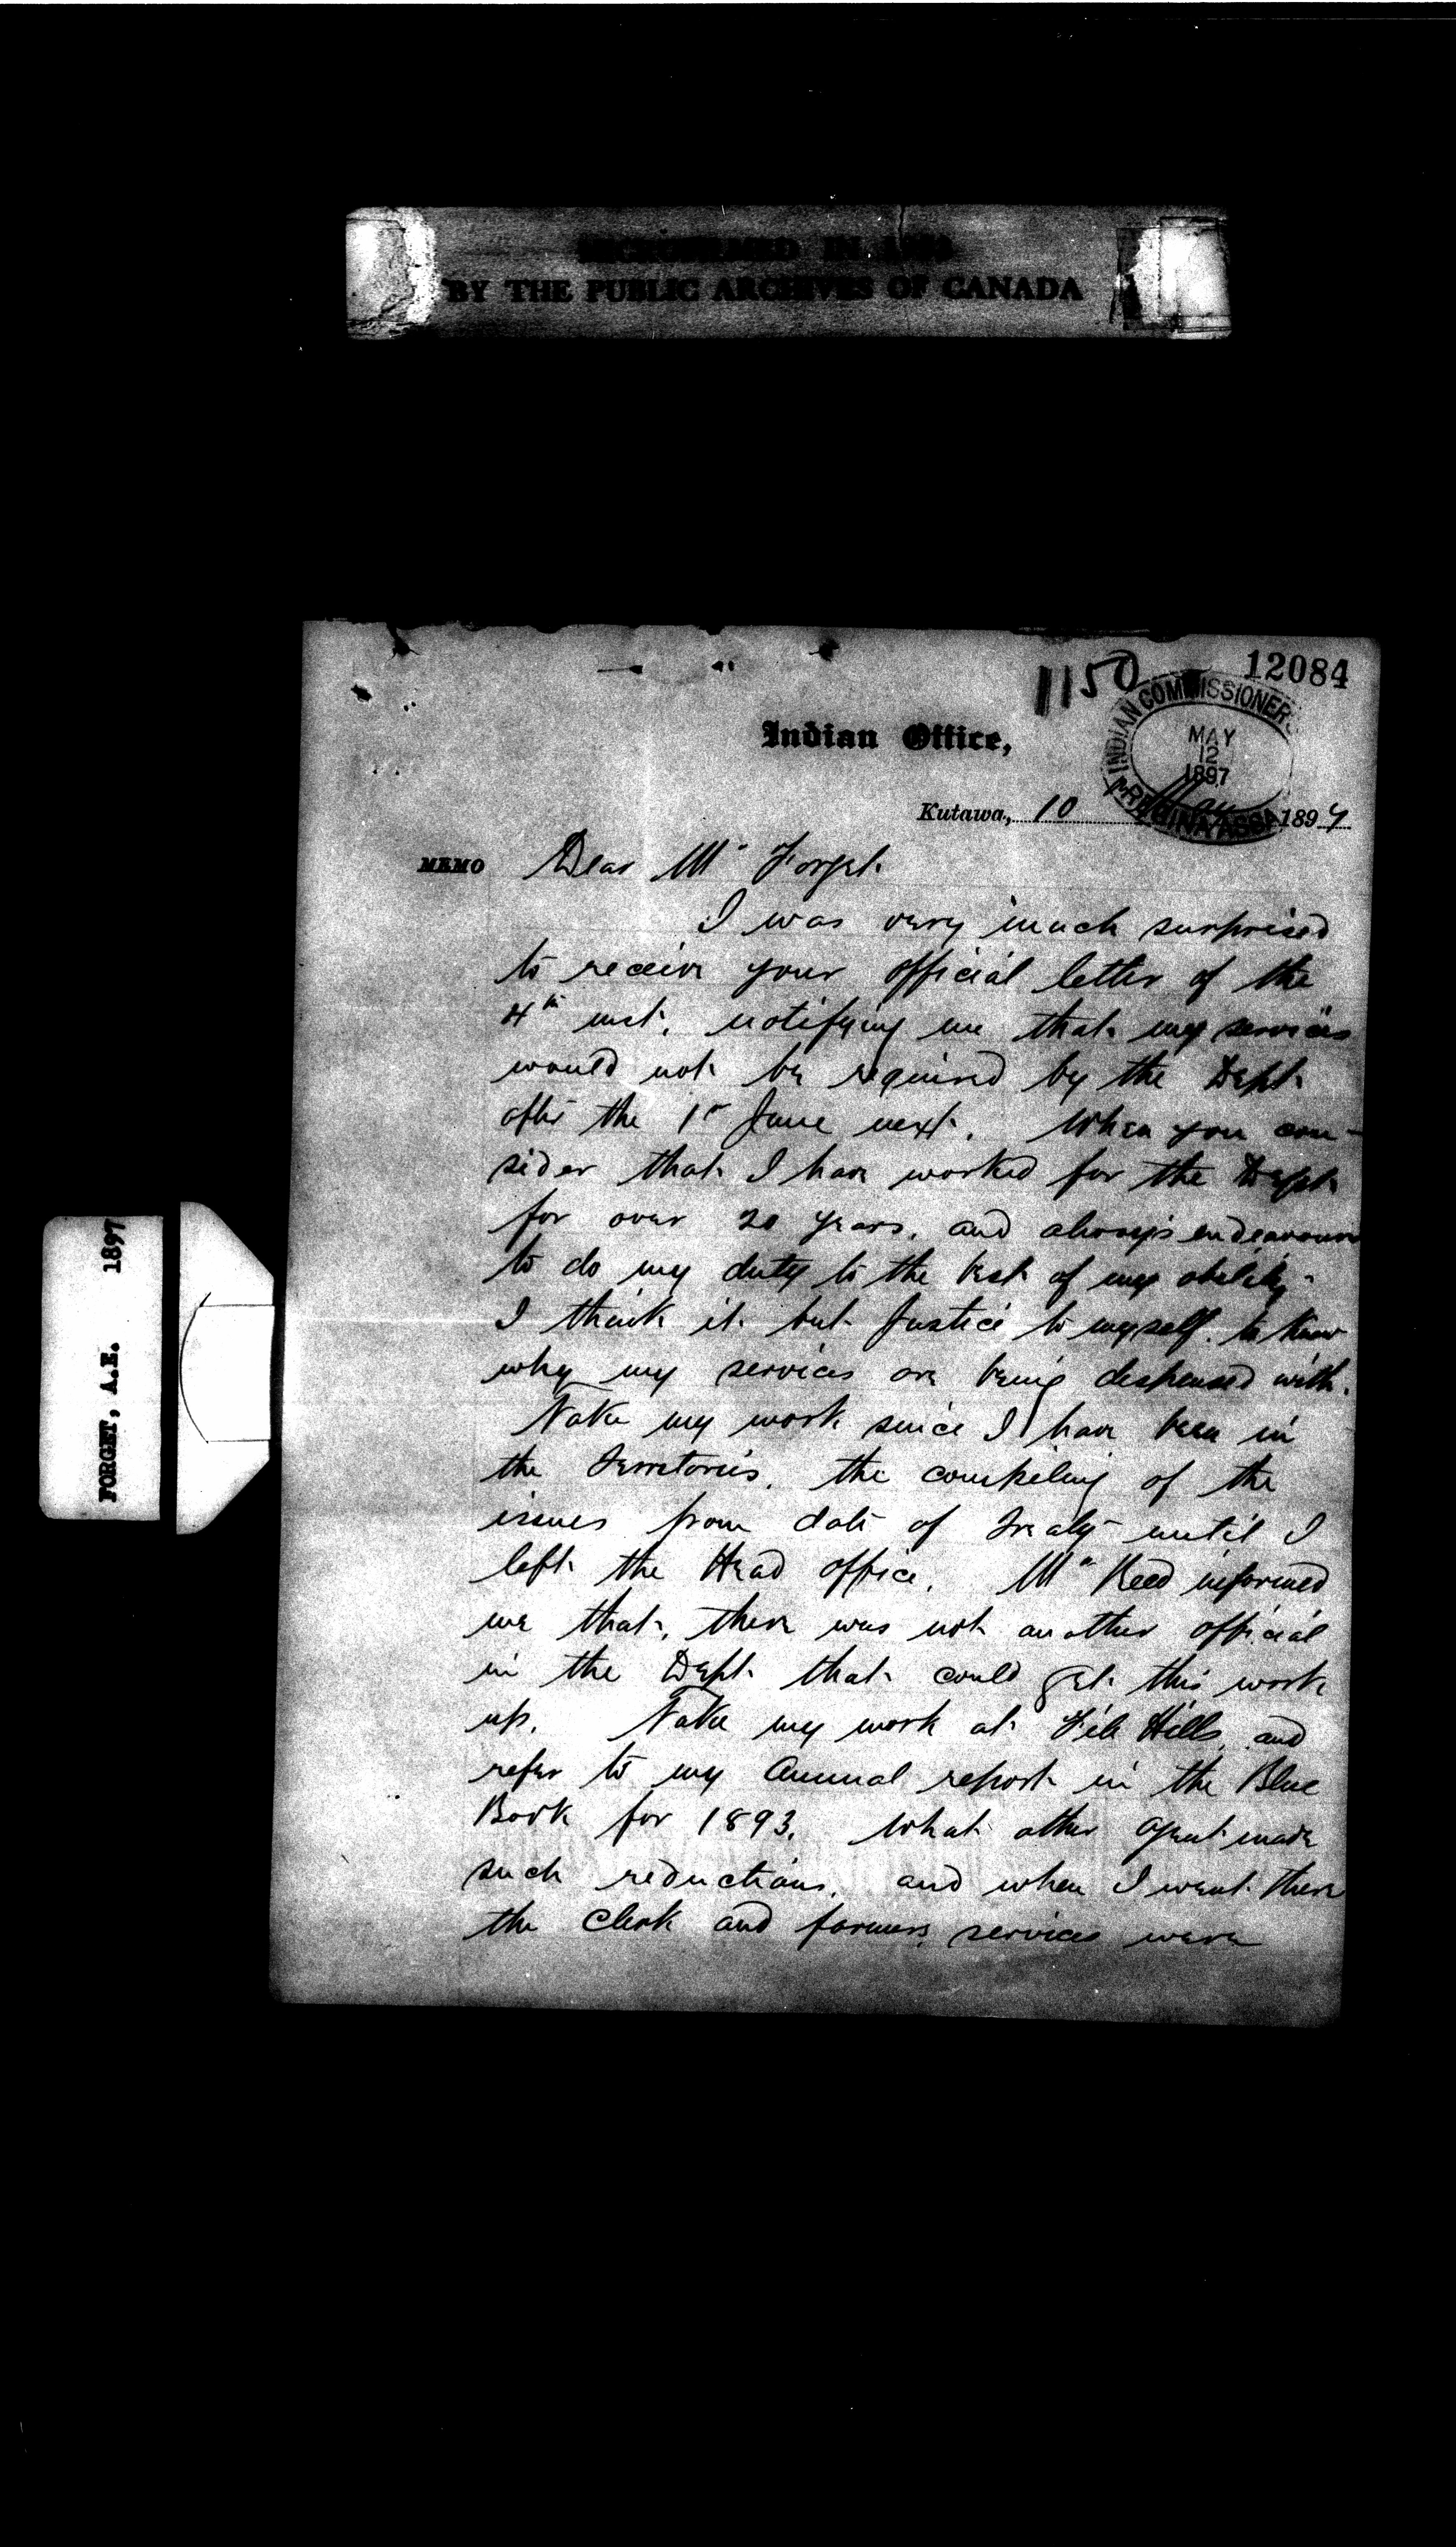 MICROFILMED IN
BY THE PUBLIC ARCHIVES OF CANADA
FORGET, A.E. 1897
12084
1150
INDIAN COMMISSIONER
MAY
12
1897
REGINA, ASSA
Indian Office,
Kutawa, 10 May 1897
MEMO
Dear Mr Forget
I was very much surprised
to receive your official letter of the
4th inst. notifying me that my services
would not be required by the Dept
after the 1st June next. When you con-
sider that I have worked for the Dept
for over 20 years, and always endeavoured
to do my duty to the best of my ability
I think it but Justice to myself to know
why my services are being dispensed with.
Take my work since I have been in
the Territories, the compiling of the
issues from date of Treaty until I
left the Head office. Mr Reed informed
me that, there was not another official
in the Dept that could get this work
up. Take my work at File Hills, and
refer to my Annual report in the Blue
Book for 1893. What other agent made
such reductions, and when I went there
the Clerk and farmers services were